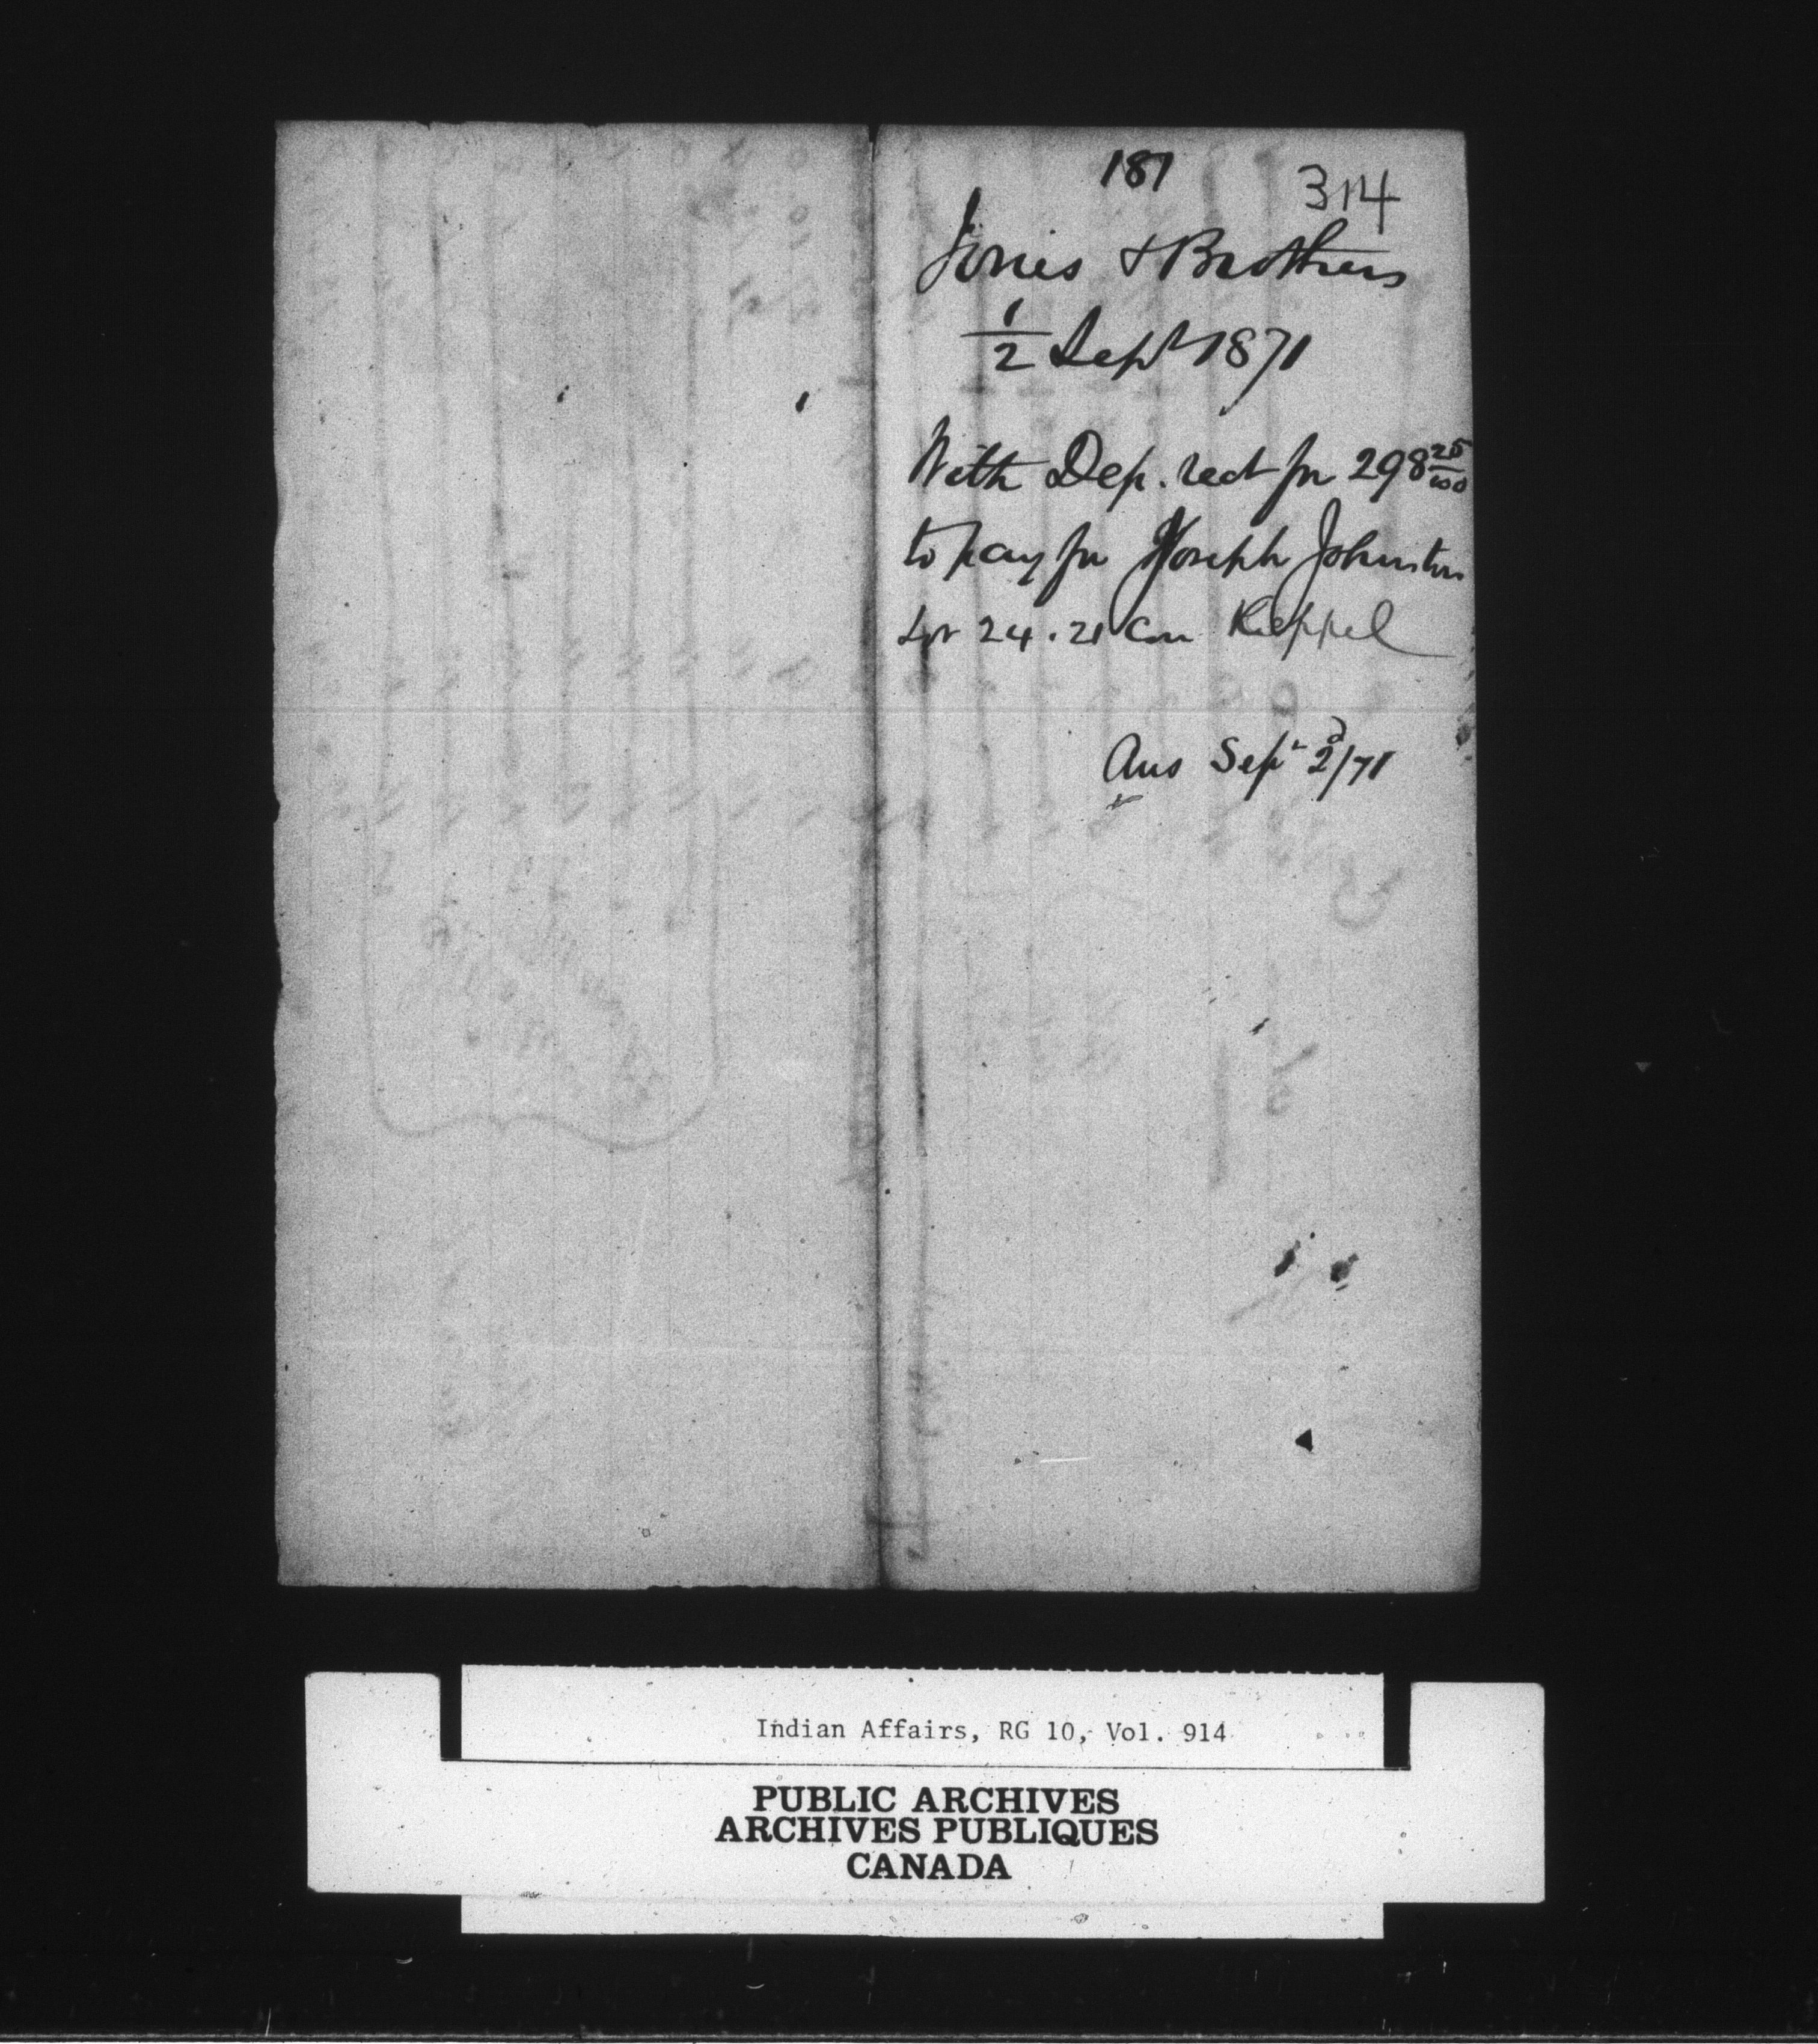 181
314
Jones & Brothers
1/2 Sept 1871
With Dep. rect for 298 25/100
to pay for Joseph Johnston
Lot 24 . 21 Con Keppel
Ans Sept 2d/71
Indian Affairs, RG 10, Vol. 914
PUBLIC ARCHIVES
ARCHIVES PUBLIQUES
CANADA